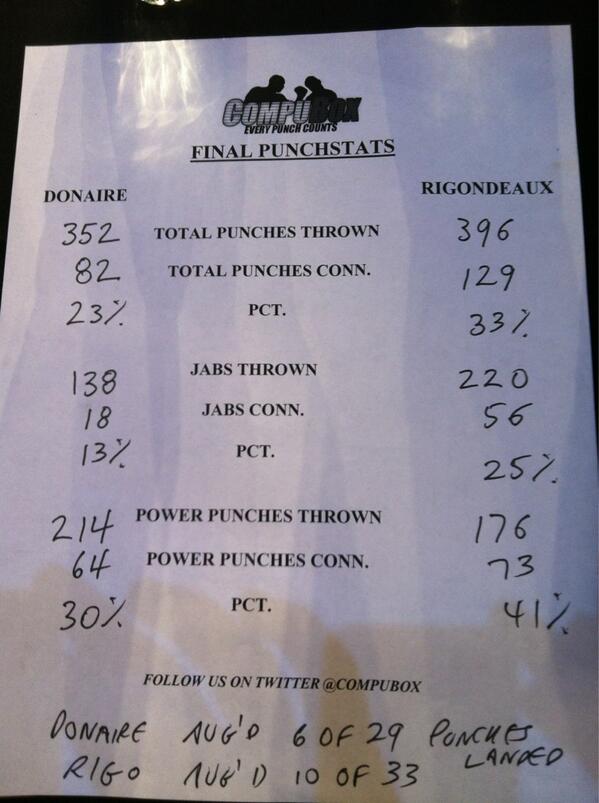 COMPUBOX
EVERY PUNCH COUNTS
FINAL PUNCHSTATS
DONAIRE RIGONDEAUX
352 TOTAL PUNCHES THROWN 396
82 TOTAL PUNCHES CONN. 129
23% PCT. 33%
138 JABS THROWN 220
18 JABS CONN. 56
13% PCT. 25%
214 POWER PUNCHES THROWN 176
64 POWER PUNCHES CONN. 73
30% PCT. 41%
FOLLOW US ON TWITTER @COMPUBOX
DONAIRE AUG'D 6 OF 29 PUNCHES
LANDED
RIGO AUG'D 10 OF 33